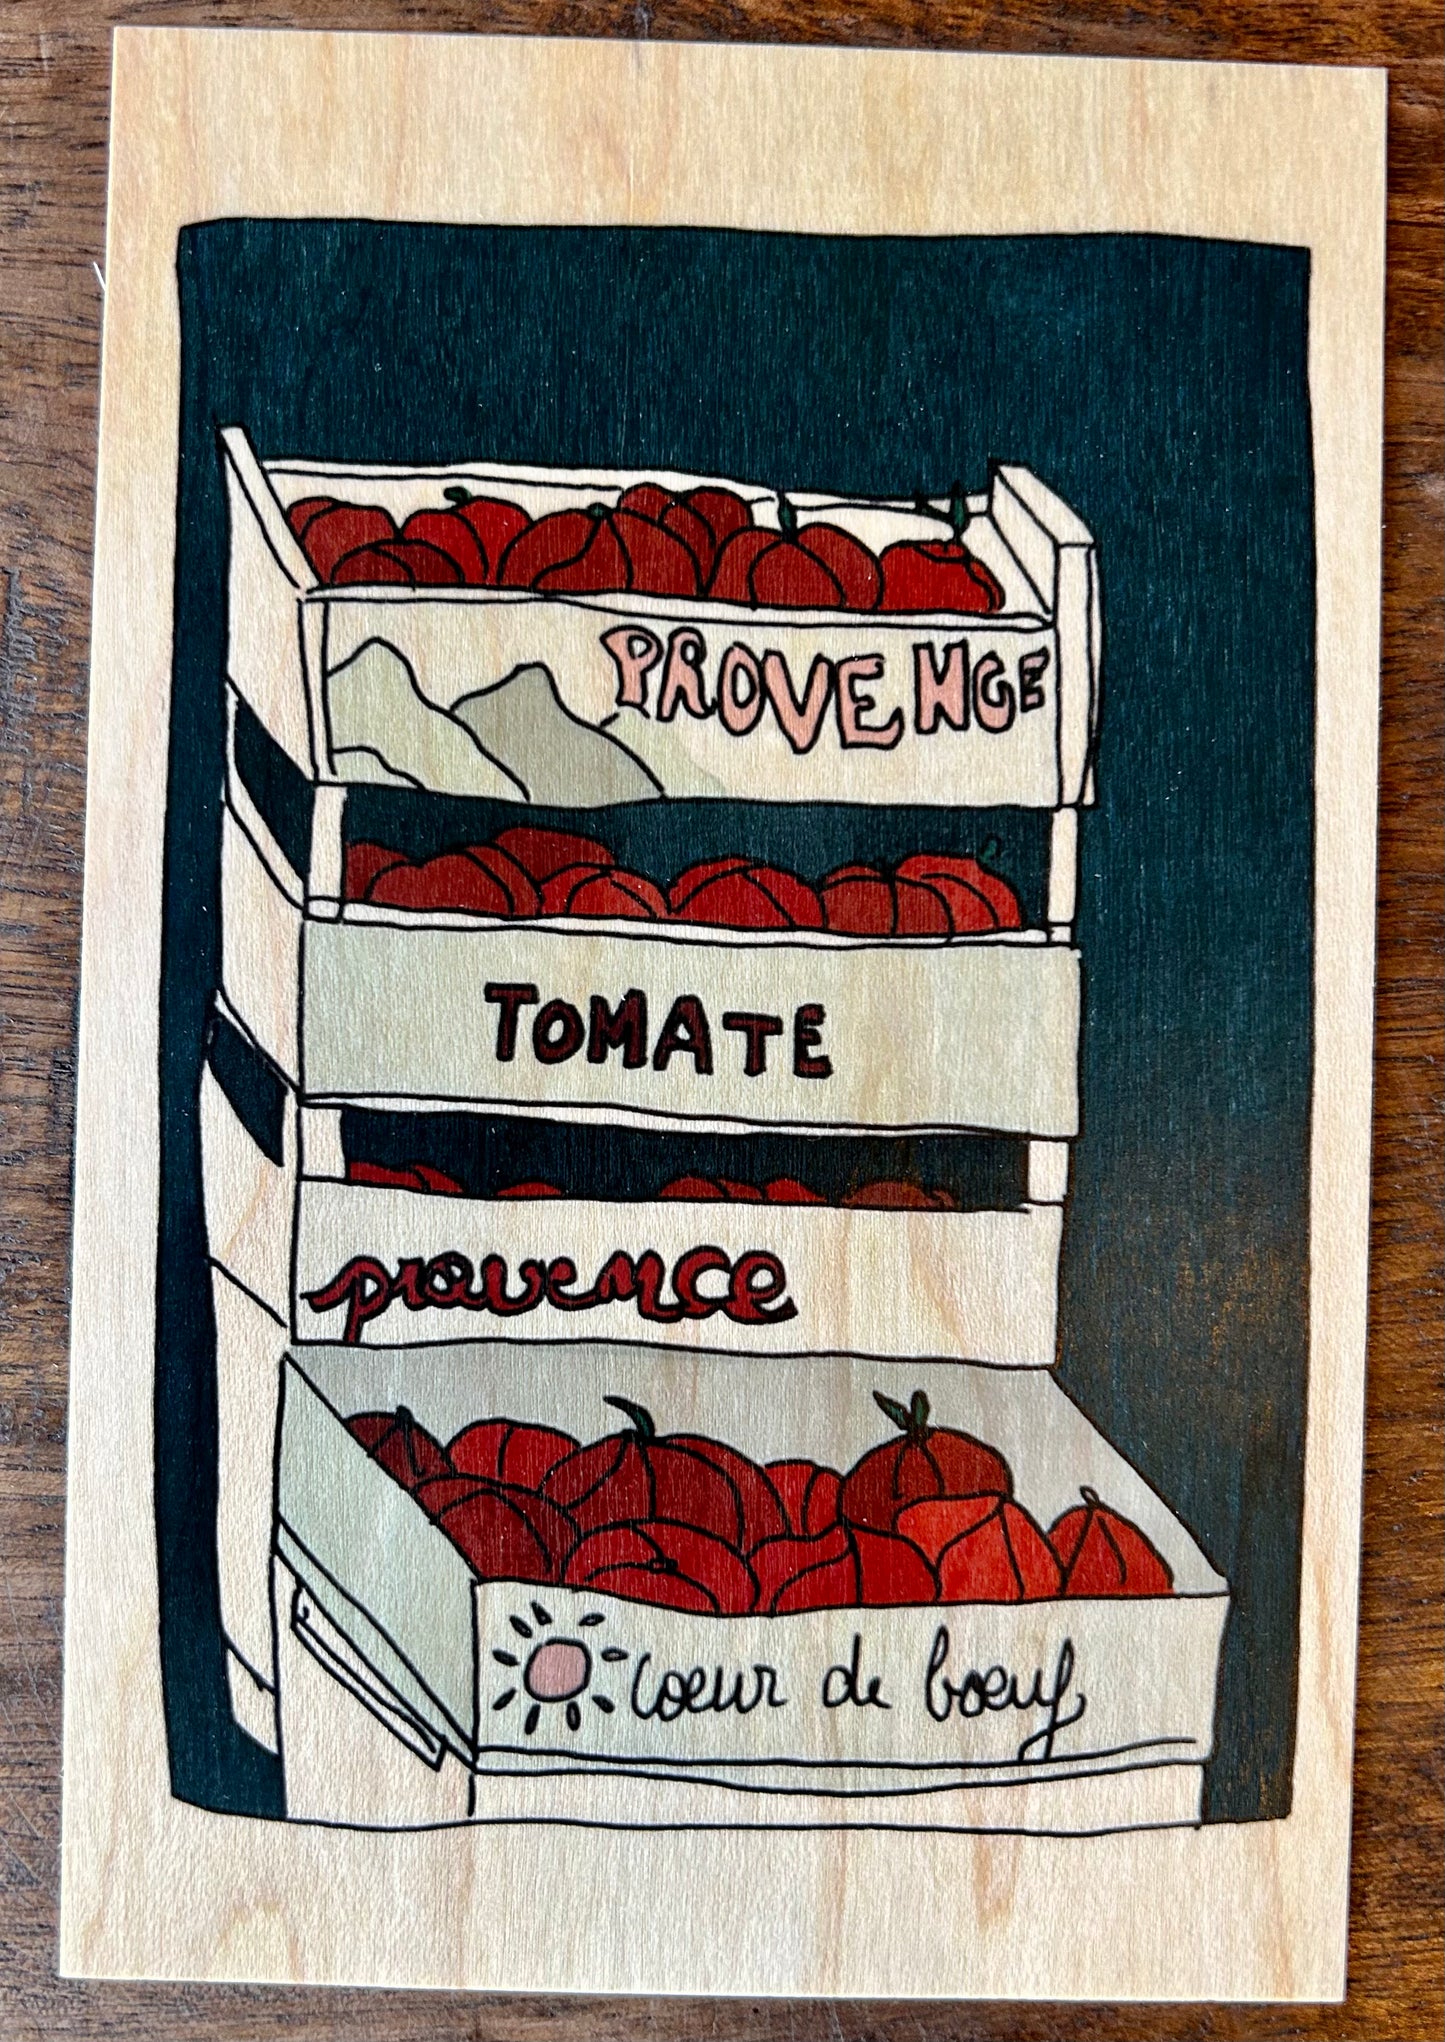 PROVENCE
TOMATE
provence
coeur de boeuf